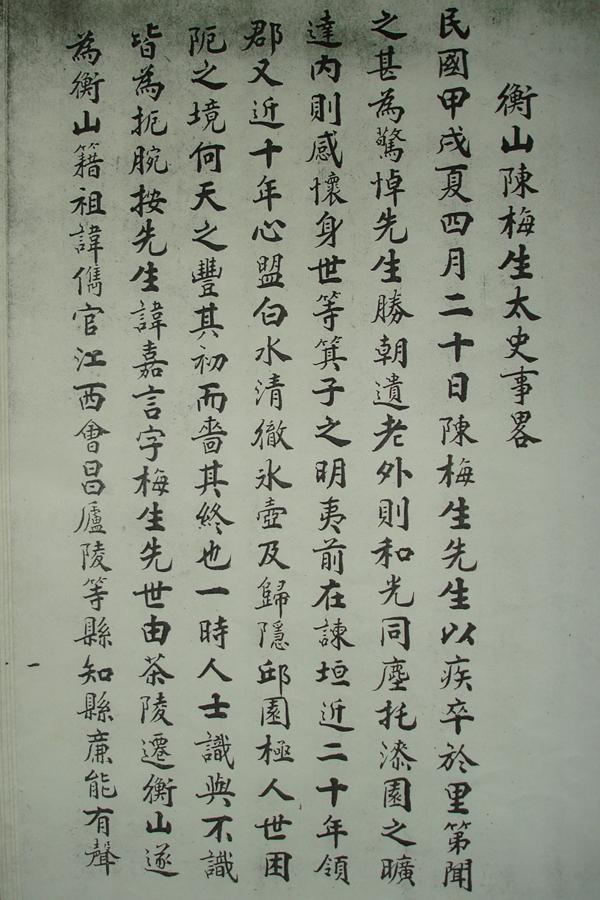 衡山陳梅生太史事畧
民國甲戌夏四月二十日陳梅生先生以疾卒於里第聞
之甚為驚悼先生勝朝遺老外則和光同塵托漆園之曠
達內則感懷身世等箕子之明夷前在諫垣近二十年領
郡又近十年心盟白水清徹冰壺及歸隱邱園極人世困
阨之境何天之豐其初而嗇其終也一時人士識與不識
皆為扼腕按先生諱嘉言字梅生先世由茶陵遷衡山遂
為衡山籍祖諱儁官江西會昌廬陵等縣知縣廉能有聲
一